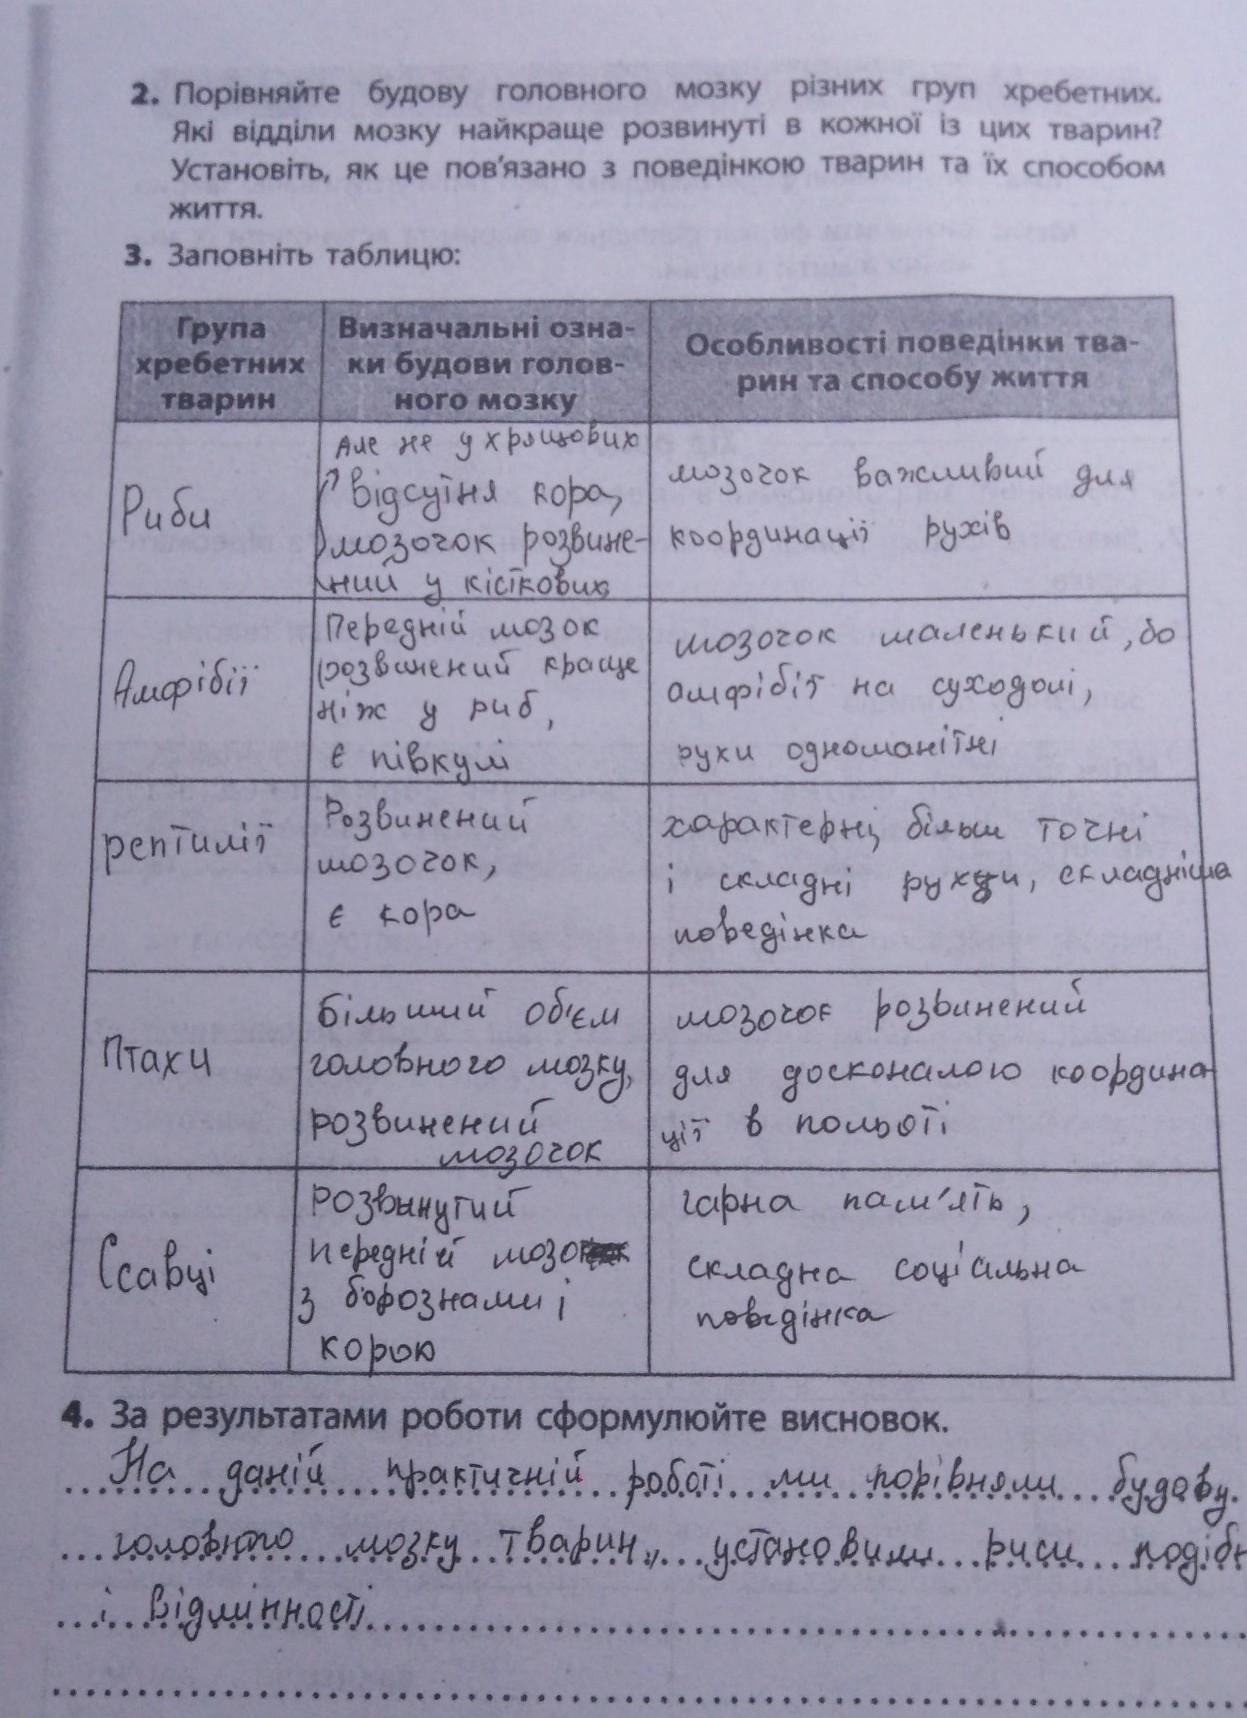 2. Порівняйте будову головного мозку різних груп хребетних.
Які відділи мозку найкраще розвинуті в кожної із цих тварин?
Установіть, як це пов'язано з поведінкою тварин та їх способом
життя.
3. Заповніть таблицю:
Група
хребетних
тварин
Визначальні озна-
ки будови голов-
ного мозку
Особливості поведінки тва-
рин та способу життя
Риби
Але не у хрящових
Відсутня кора,
мозочок розвине-
ний у кісткових
мозочок важливий для
координації рухів
Амфібії
Передній мозок
розвинений краще
ніж у риб,
є півкулі
мозочок маленький, бо
амфібії на суходолі,
рухи одноманітні
рептилії
Розвинений
мозочок,
є кора
характерні, більш точні
і складні рухи, складніша
поведінка
Птахи
Більший об'єм
головного мозку,
розвинений
мозочок
мозочок розвинений
для досконалою координа
ції в польоті
Ссавці
розвынутий
передній мозок
з борознами і
корою
гарна пам'ять,
складна соціальна
поведінка
4. За результатами роботи сформулюйте висновок.
На даній практичній роботі ми порівняли будову
головного мозку тварин, установили риси подібн
і відмінності